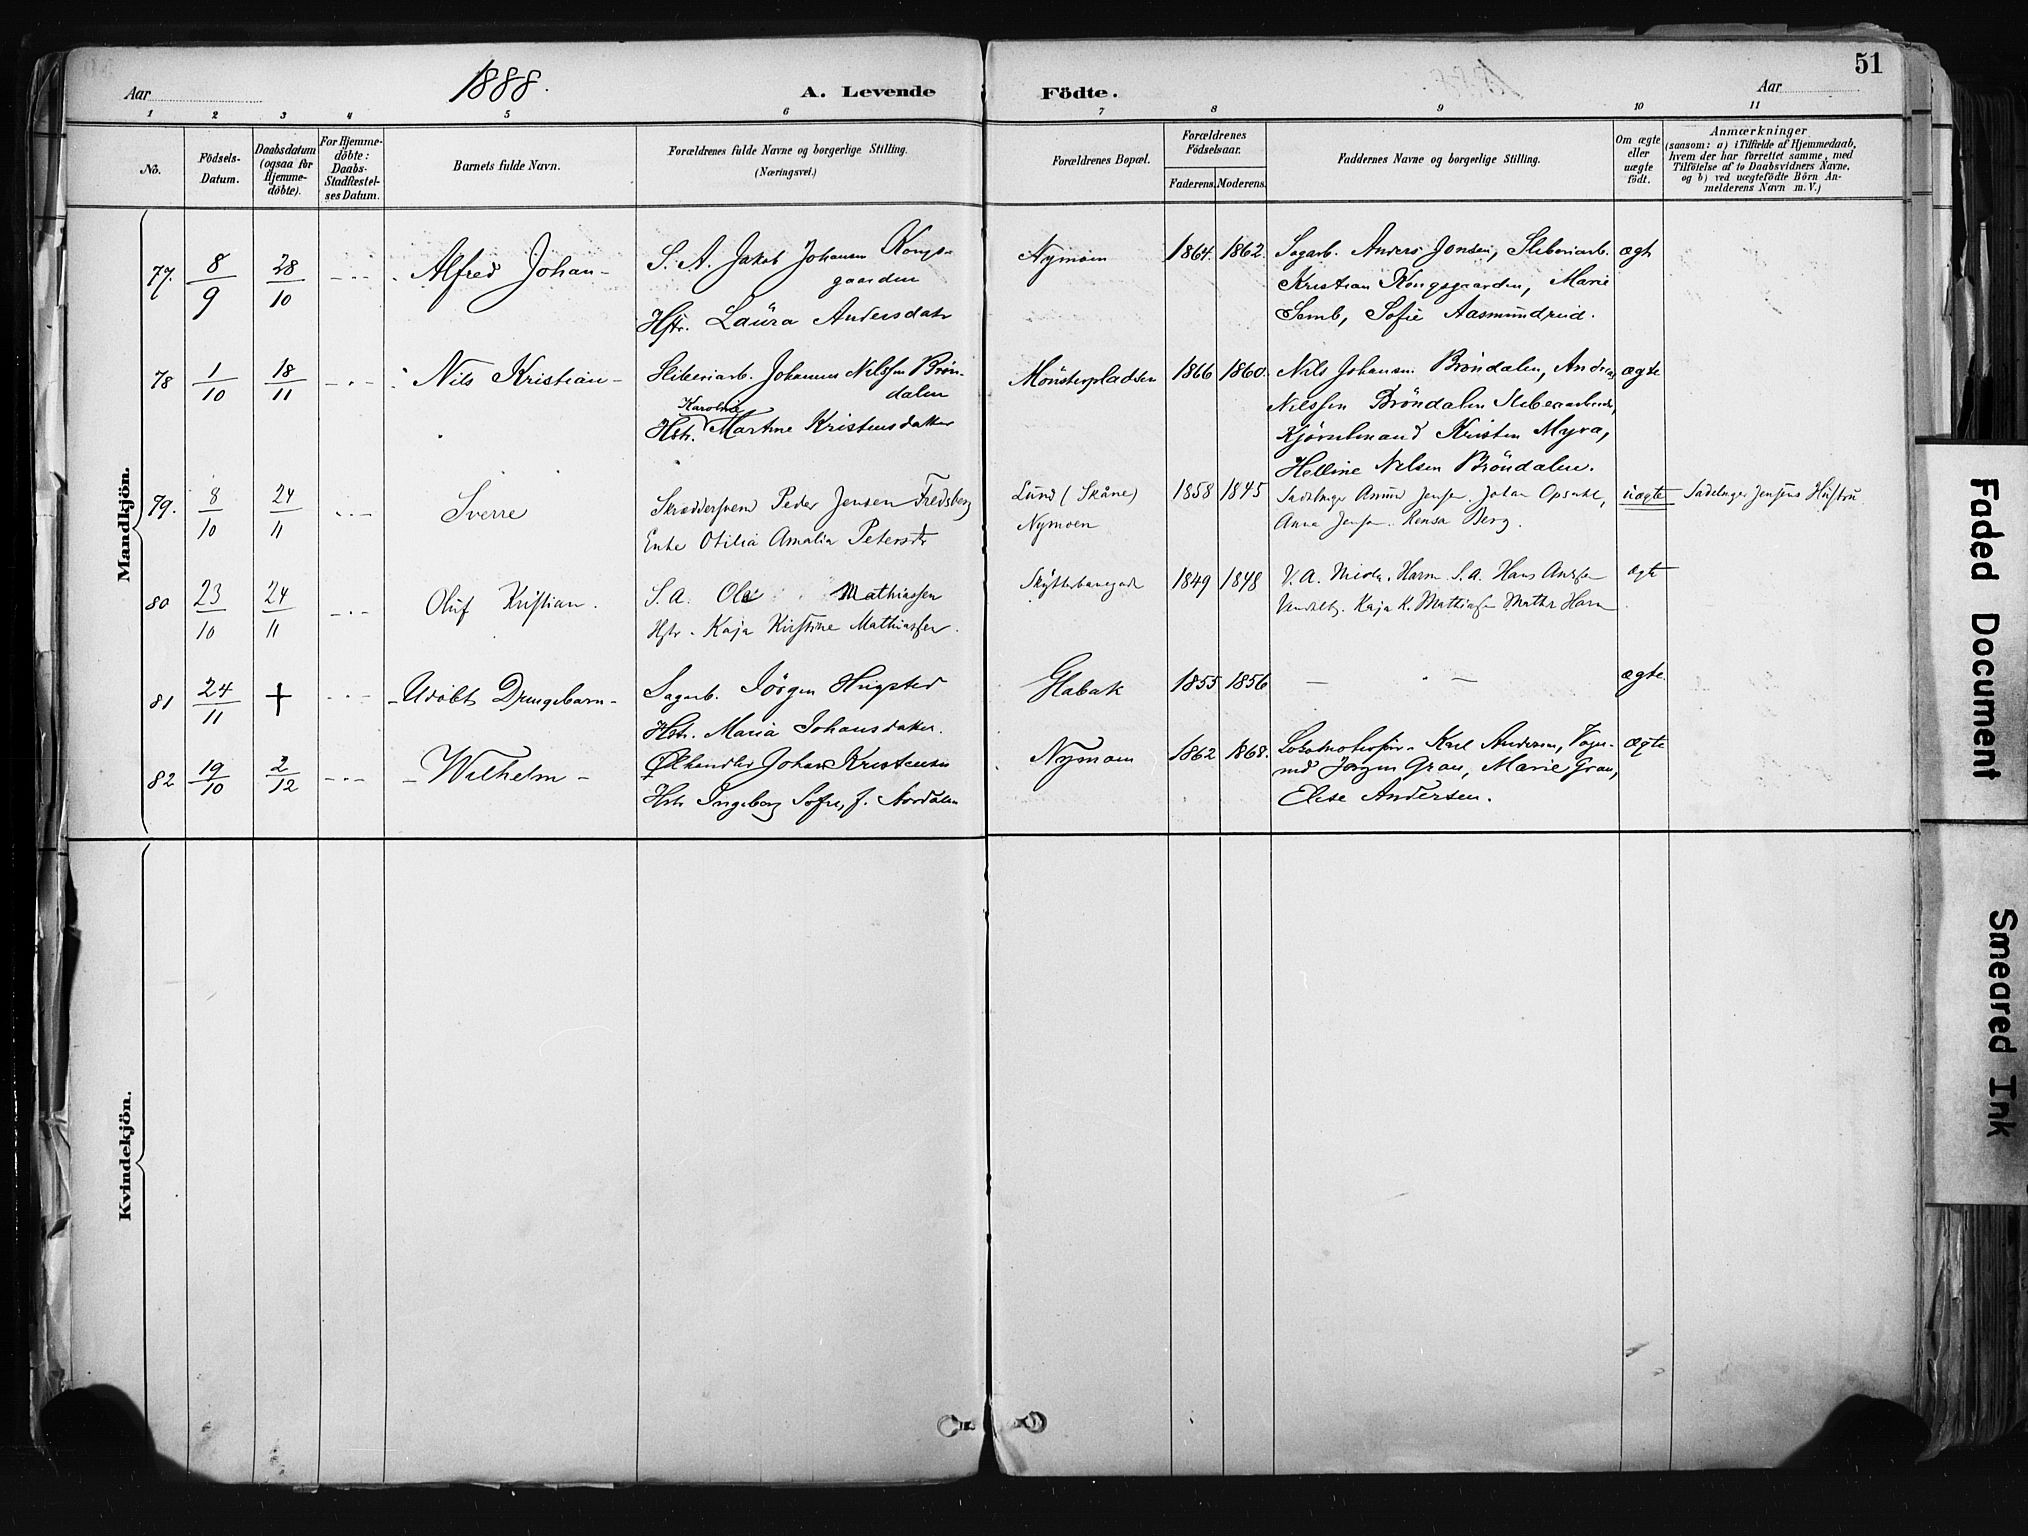 51
Aar 1888. A. Levende Födte. Aar
1 2 3 4 5 6 7 8 9 10 11
No.
Födsels-Datum.
Daabsdatum (ogsaa for Hjemme-döbte).
For Hjemme-döbte: Daabs-Stadfæstel-ses Datum.
Barnets fulde Navn.
Forældrenes fulde Navne og borgerlige Stilling. (Næringsvei.)
Forældrenes Bopæl.
Forældrenes Födselsaar.
Faderens. Moderens.
Faddernes Navne og borgerlige Stilling.
Om ægte eller uægte födt.
Anmærkninger
(saasom: a) i Tilfælde af Hjemmedaab,
hvem der har forrettet samme, med
Tilföielse af to Daabsvidners Navne,
og b) ved uægtefödte Börn An-
melderens Navn m. V.)
Mandkjön.
77. 8/9 28/10 - - - Alfred Johan - S. A. Jakob Johansen Kongs- Nymoen 1864. 1862. Sagarb. Anders Jonsen, Sliberiarb. ægte
gaarden Kristian Kongsgaarden, Marie
Hstr. Laura Andersdatr Semb, Sofie Aasmundrud.
78 1/10 18/11 - - - Nils Kristian - Sliberiarb. Johannes Nilssen Brön- Mönsterpladsen 1866 1860. Nils Johansen Bröndalen, Andreas ægte
dalen Nilssen Bröndalen Sliberiarbeider,
Karoline
Hstr. Martine Kristensdatter Kristen Myra,
Helline Nilsen Bröndalen.
79. 8/10 24/11 - - - Sverre Skræddersvend Peder Jensen Fredsberg Lund (Skåne) 1858 1845 Jensen. Johan Opsahl, uægte Sadelmager Jensens Hustru
Enke Otilia Amalia Petersdtr Nymoen Anna Jensen. Berg.
80 23/10 24/11 - - - Oluf Kristian. S. A. Ole Mathiassen Skytterbanegad 1849 1848 Harm. S. A. Hans Andersen ægte
Hstr. Kaja Kristine Mathiassen. Kaja K. Mathiassen Harm
81 24/11 † - - - - Udöbt Drengebarn - Sagarb. Jörgen Hugsted Glabak 1855 1856 - - - ægte.
Hstr. Maria Johansdatter.
82 19/10 2/12 - - - - Wilhelm - Ølhandler Johan Kristensen Nymoen 1862 1868. Lokomotivfør. Karl Andersen, Vogn- ægte
Hstr Ingeborg Sofie, f. Nordalen md Jörgen Grau, Marie Grau,
Elise Andersen.
Kvindekjön.
Faded Document
Smeared Ink